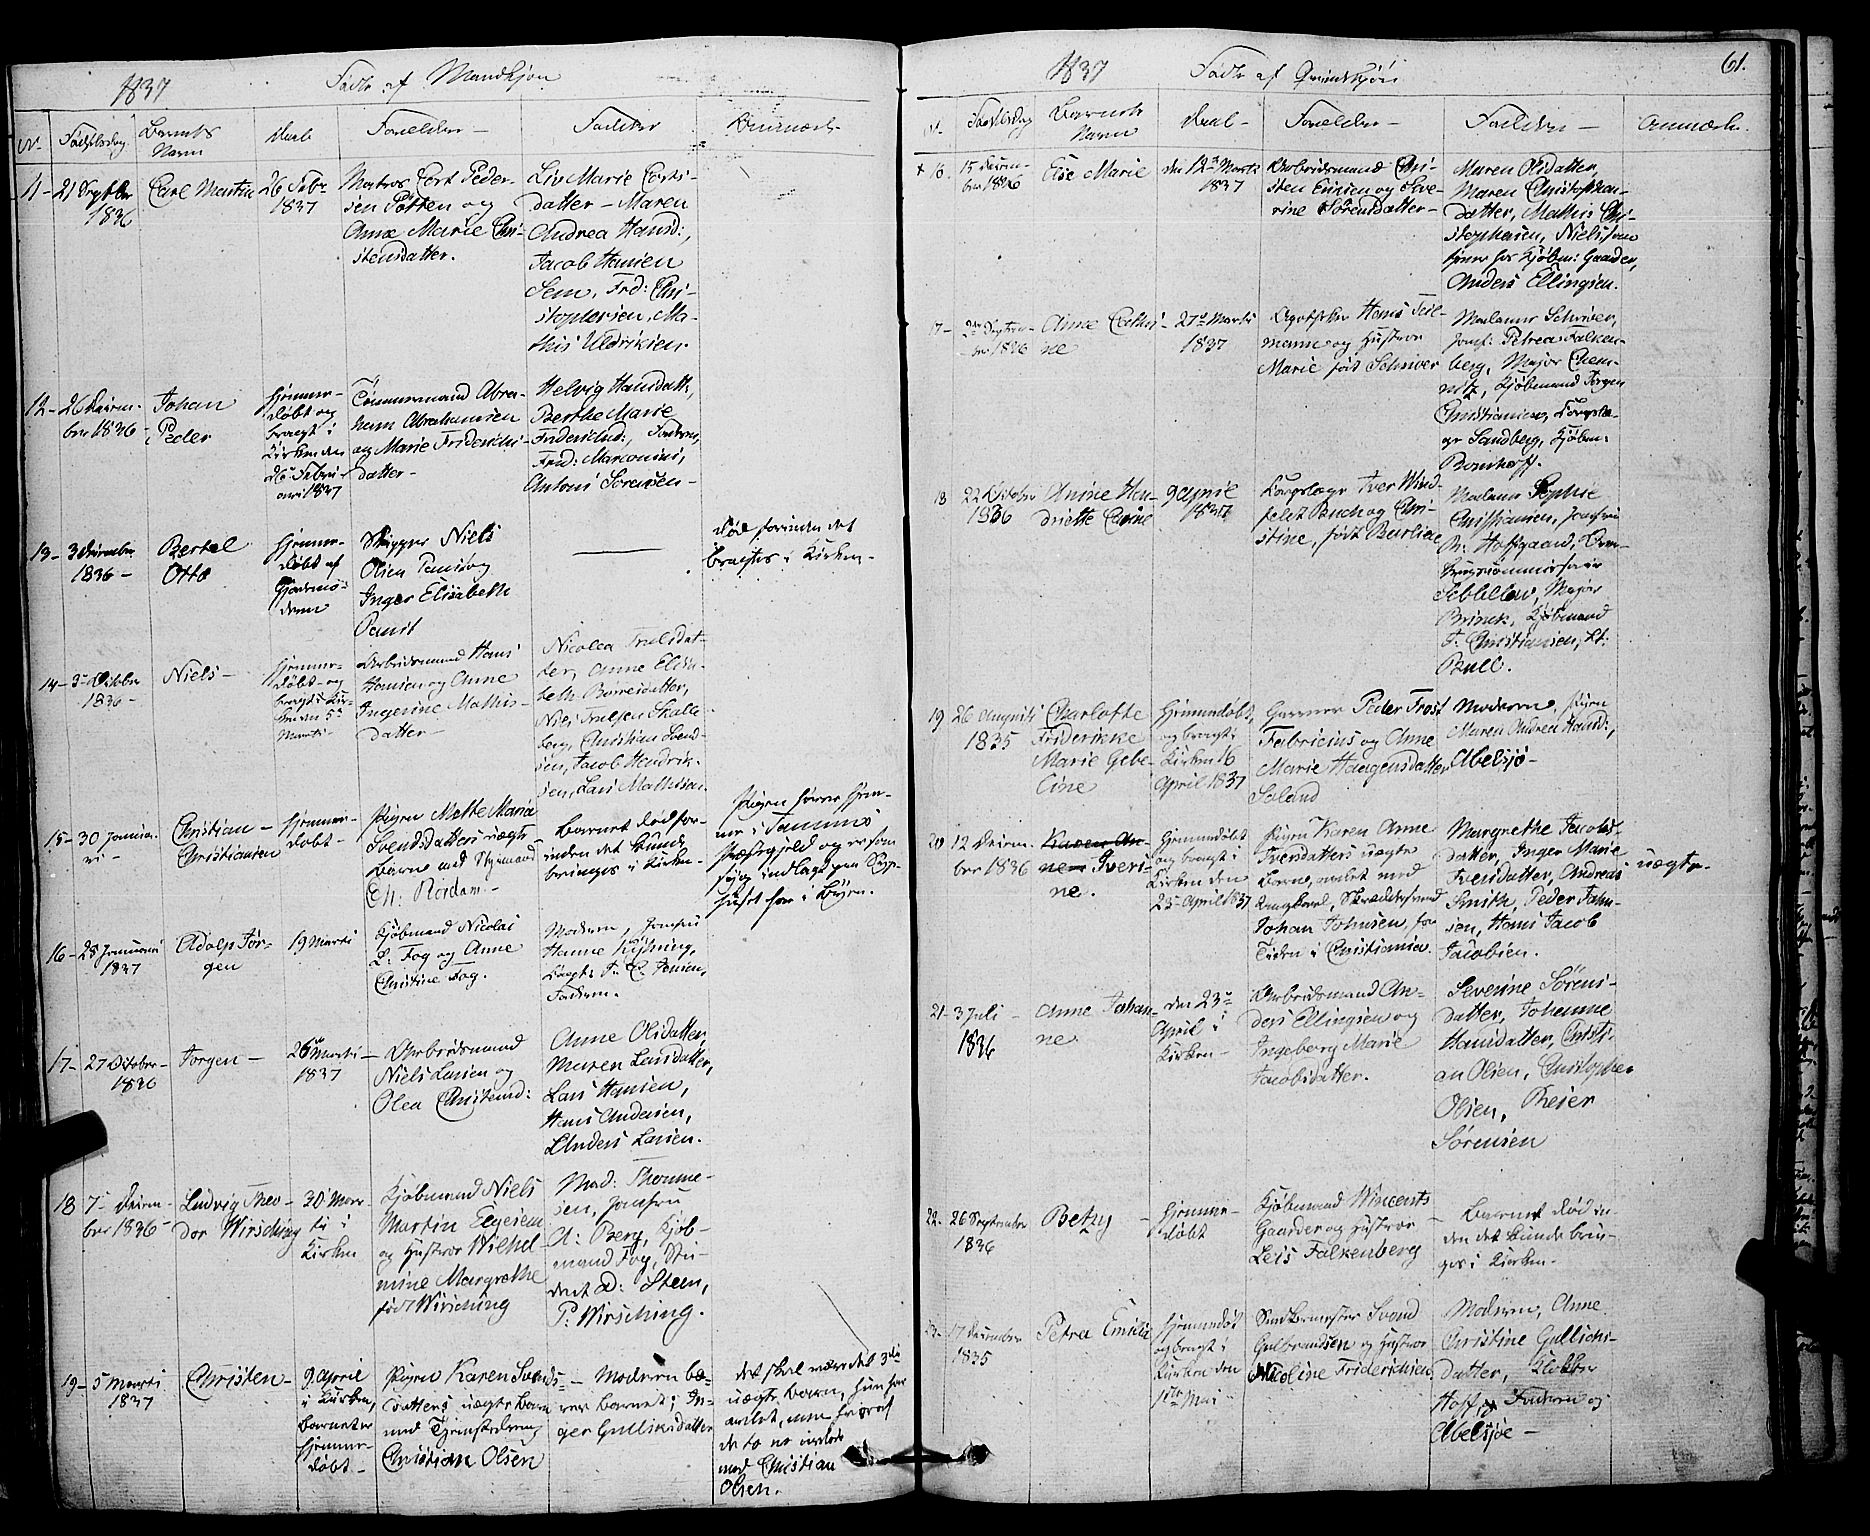 1837
Fødte af Mandkjøn
No
Fødselsdag
Barnets
Navn
Daab
Forældre
Faddere
Anmærk.
11
21 Septbr
1836
Carl Martin
26 Febr
1837
Matros Cort Peder-
sen Potten og
Anne Marie Chri-
stensdatter.
Liv Marie Corts-
datter - Maren
Andrea Hansd:,
Jacob Hansen
Sem, Frd: Chri-
stophersen, Ma-
this Uldriksen.
12
26 Decem-
ber 1836
Johan
Peder
hjemme-
døbt og
bragt i
Kirken den
26 Febru-
ari 1837
Tømmermand Abra-
ham Abrahamsen
og Marie Friderichs-
datter
Helvig Hansdatt:,
Berthe Marie
Friderichsd:, Faderen,
Frid:
Antoni Sørensen
13
3 Decembr
1836
Bertel
Otto
hjemme-
døbt af
Gjordemo-
deren
Skipper Niels
Olsen
Inger Elisabeth
død forinden det
bragtes i Kirken
14
3 Octobr
1836
Niels
hjemme-
døbt og
bragt i Kir-
ken den 5
Marts
Arbeidsmand Hans
Hansen og Anne
Ingerine Mathis-
datter
Nicolea Trulsdat-
ter, Anne Elisa-
beth
Niels Trulsen Skalle-
berg, Christian Svend-
sen, Jacob Hendrik-
sen, Lars Mathisen.
15
30 Janua-
ri
Christian
Christiansen
hjemme-
døbt
Pigen Mette Maria
Svendsdatters uægte
Barn med Styrmand
Ch: Rørdam
Barnet død for-
inden det kunde
bringes i Kirken
Pigen hører hjem-
me i
Præstegjeld og er som
syg indlagt paa Syge-
huset her i Byen.
16
28 Januari
1837
Adolp Jør-
gen
19 Marts
Kjøbmand Nicolai
L: Fog og Anne
Christine Fog.
Moderen, Jomfru
Hanne
Capt: F: C: Jensen,
Faderen.
17
27 October
1836
Jørgen
26 Marts
1837
Arbeidsmand
Niels Larsen og
Olea Christensd:
Anne Olsdatter,
Maren Larsdatter,
Lars Hansen,
Hans Andersen,
Anders Larsen.
18
7 Decem-
ber 1836
Ludvig Theo-
dor Wirsching
30 Mar-
ts i
Kirken
Kjøbmand Niels
Martin Elgesem
og Hustroe Wilhel-
mine Margrethe
født Wirsching
Mad: Thomme-
sen, Jomfru
A: Berg, Kjøb-
mand Fog, Stu-
dent A: Steen,
P: Wirsching.
19
5 Marts
1837
Christen
9 April
i Kirken,
Barnet er
hjemme-
døbt
Pigen Karen Svends-
datters uægte Barn
med Tjenestedreng
Christian Olsen
Moderen bæ-
rer barnet; In-
ger Gulliksdatter
det skal være det 3die
uægte Barn, hun har
avlet, men hvoraf
de to er avlede
med Christian
Olsen.
1837
Fødte af Qvindekjøn
61.
No
Fødselsdag
Barnets
Navn
Daab
Forældre
Faddere
Anmærk.
+ 16.
15 Decem-
ber 1836
Else Marie
den 12 Marts
1837
Arbeidsmand Chri-
sten Ennsen og Seve-
rine Sørensdatter
Maren Olsdatter,
Maren Christophers-
datter, Mathis Chri-
stophersen, Niels som
tjener hos Kjøbm: Gaarder,
Anders Ellingsen.
17
Septem-
ber 1836
Anne Cathri-
ne
27 Marts
1837
Apotheker Hans Teil-
mann og Hustroe
Marie født Schriver
Madame Schriver,
Jomf: Petrea Falken-
berg, Major Chem-
nitz, Kjøbmand Jørgen
Christiansen,
Sandberg, Kjøbm:
18
22 October
1836
Anine Hen-
driette Cecine
9 April
1837
Corpslæge Iver Wind-
feldt Buch og Chri-
stine, født
Madame Sophie
Christiansen, Jomfru
Hoffgaard, Over-
krigscommissair
Major
Brinck, Kjøbmand
F. Christiansen, Lt:
Bull.
19
26 August
1835
Charlotte
Friderikke
Marie Gebe-
cine
Hjemmedøbt
og bragt i
Kirken 16
April 1837
Garver Peder Frost
Fabricius og Anne
Marie Haagensdatter
Moderen, Pigen
Maren Andrea Hansd:,
Abelsjø
20
12 Decem-
ber 1836
Karen An-
ne Iveri-
ne.
Hjemmedøbt
og bragt i
Kirken den
23 April 1837
Pigen Karen Anne
Iversdatters uægte
Barn, avlet med
Ungkarl, Skræddersvend
Johan Johnsen, for
Tiden i Christiania.
Margrethe Jacobs-
datter, Inger Marie
Iversdatter, Andreas
Smith, Peder Jahn-
sen, Hans Jacob
Jacobsen.
uægte
21
3 Juli
1836
Anne Johan-
ne
den 23
April i
Kirken
Arbeidsmand An-
ders Ellingsen og
Ingeborg Marie
Jacobsdatter.
Severine Sørens-
datter, Johanne
Hansdatter, Christi-
an Olsen, Christopher
Olsen, Reier
Sørensen
22
26 September
1836
Betzy
Hjemme-
døbt
Kjøbmand Wincents
Gaarder og Hustroe
Leis Falkenberg
Barnet død in-
den det kunde brin-
ges i Kirken
23
17 December
1835
Petra Emilie
hjemmedøbt
og bragt i
Kirken den
1ste Mai
Snedkermester Svend
Gulbrandsen og Hustroe
Nicoline Friderichsen
Moderen, Anne
Christine Gullichs-
datter, Klokker
Hoff, Faderen og
Abelsjøe